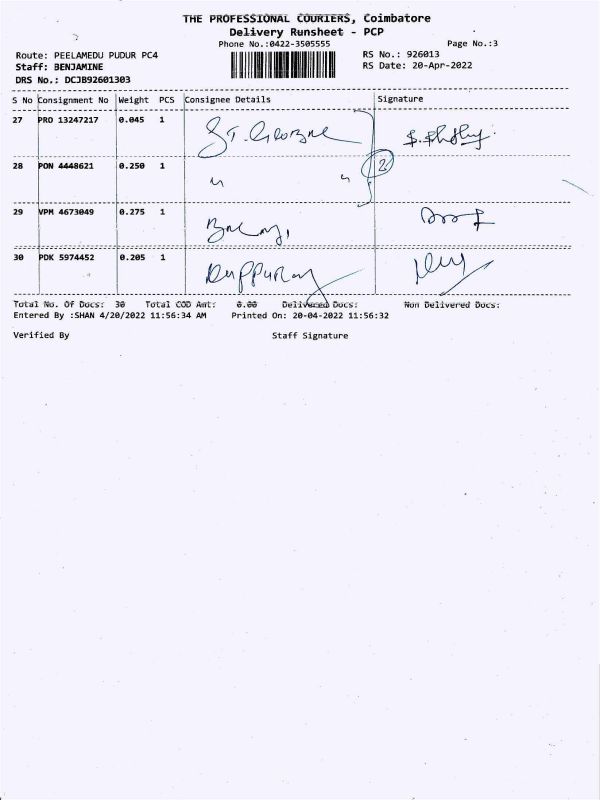 THE PROFESSIONAL COURIERS, Coimbatore
Delivery Runsheet - PCP
Phone No.:0422-3505555 Page No.:3
Route: PEELAMEDU PUDUR PC4 RS No.: 926013
Staff: BENJAMINE RS Date: 20-Apr-2022
DRS No.: DCJB92601303
S No Consignment No Weight PCS Consignee Details Signature
27 PRO 13247217 0.045 1 ST. George
28 PON 4448621 0.250 1 " " 2
29 VPM 4673049 0.275 1
30 PDK 5974452 0.205 1
Total No. Of Docs: 30 Total COD Amt: 0.00 Delivered Docs: Non Delivered Docs:
Entered By :SHAN 4/20/2022 11:56:34 AM Printed On: 20-04-2022 11:56:32
Verified By Staff Signature